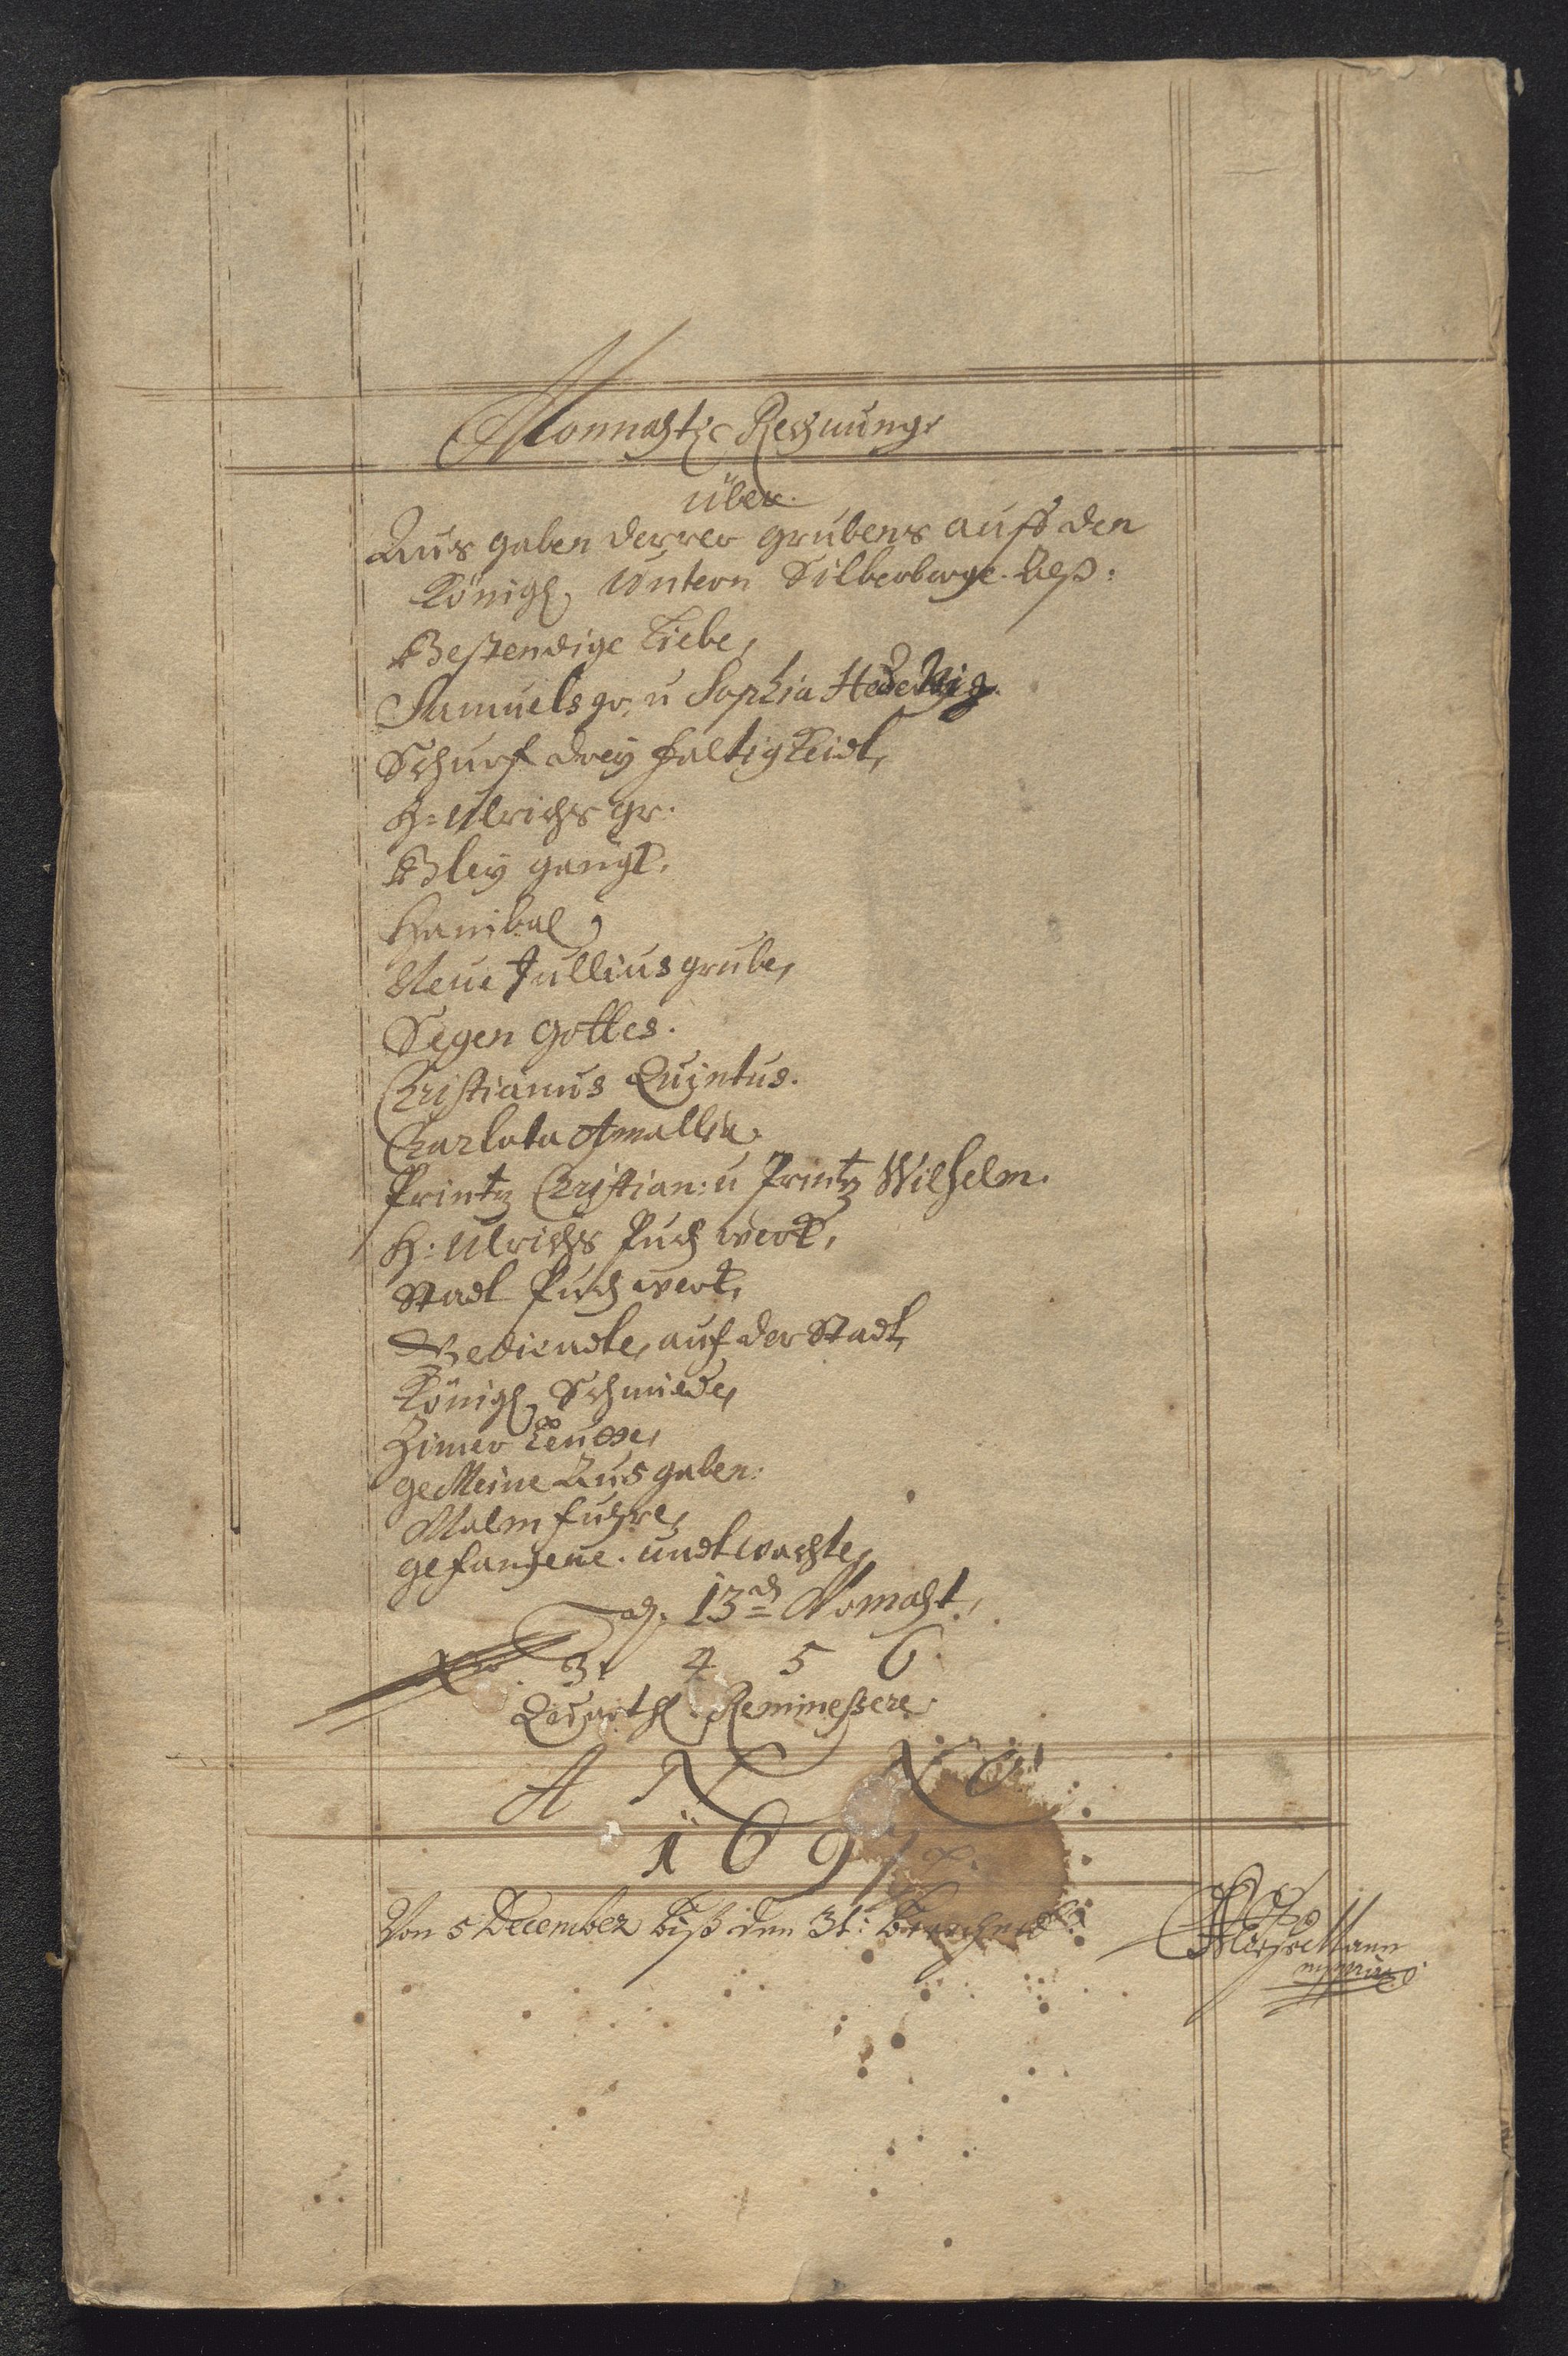 Monnahtz Rechnung
über
Aus gaben derrer grubens auff den
Königl. Untern Silberberge. Alß:
Bestendige Liebe,
Samuels gr. u Sophia Hedewig.
Schurf drey faltigkeidt,
H: Ulrichs gr.
Bley gangk.
Hanibal
Neue Jullius grube,
Segen Gottes.
Christianus Quintus.
Charlota Amallia.
Printz Christian: u Printz Wilhelm.
H: Ulrichs Puch werk,
Stadt Puch werk,
Bediendte, auf der Stadt,
Königl. Schmiede,
Zimer Leutte,
geMeine Ausgaben.
Malm fuhre,
gefangene. undt wachte,
13 Monaht,
3. 4 5 6
Quarthl Remineßere
A N N O
1697
Von 5 December biß den 31: